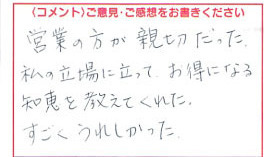 〈コメント〉ご意見・ご感想をお書きください
営業の方が親切だった。
私の立場に立って、お得になる
知恵を教えてくれた。
すごくうれしかった。